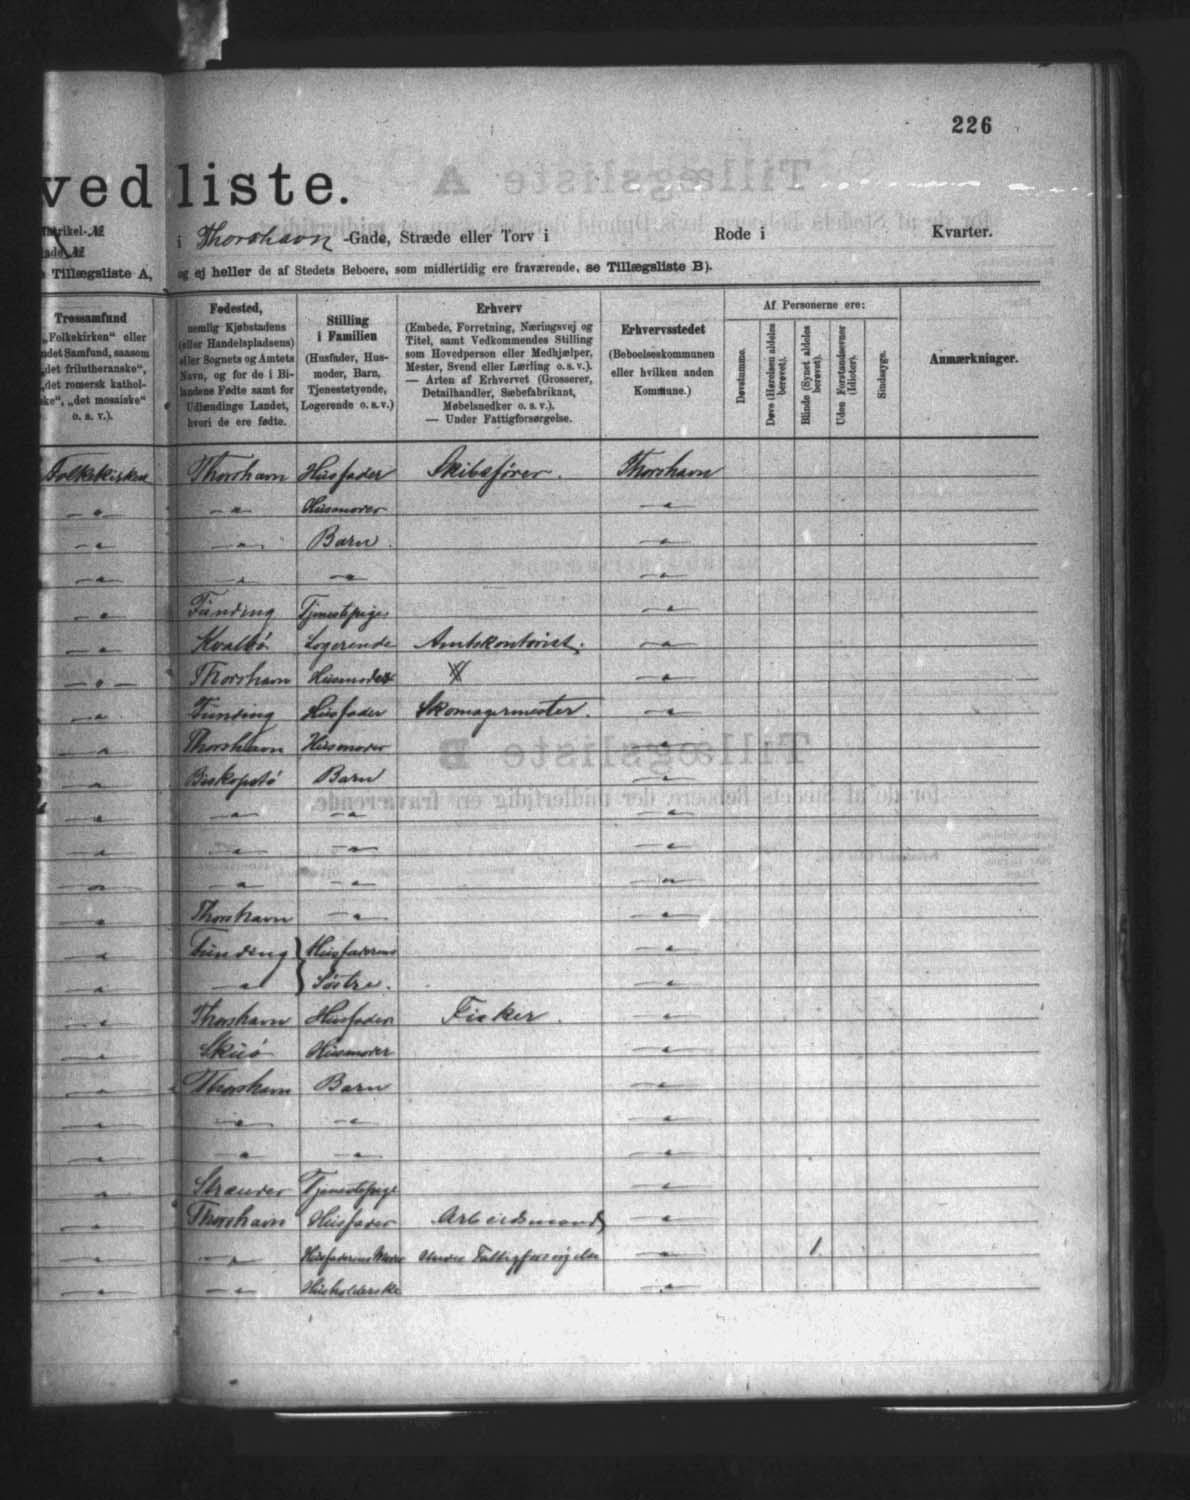 226
ved liste.
Matrikel-№
i Thorshavn -Gade, Stræde eller Torv i Rode i Kvarter.
Tillægsliste A, og ej heller de af Stedets Beboere, som midlertidig ere fraværende, se Tillægsliste B).
Trossamfund
„Folkekirken“ eller
ndet Samfund, saasom
„det frilutheranske“,
„det romersk kathol-
ske“, „det mosaiske“
o. s. v.).
Fødested,
nemlig Kjøbstadens
(eller Handelspladsens)
eller Sognets og Amtets
Navn, og for de i Bi-
landene Fødte samt for
Udlændinge Landet,
hvori de ere fødte.
Stilling
i Familien
(Husfader, Hus-
moder, Barn,
Tjenestetyende,
Logerende o. s. v.)
Erhverv
(Embede, Forretning, Næringsvej og
Titel, samt Vedkommendes Stilling
som Hovedperson eller Medhjælper,
Mester, Svend eller Lærling o. s. v.).
— Arten af Erhvervet (Grosserer,
Detailhandler, Sæbefabrikant,
Møbelsnedker o. s. v.).
— Under Fattigforsørgelse.
Erhvervsstedet
(Beboelseskommunen
eller hvilken anden
Kommune.)
Af Personerne ere:
Døvstumme.
Døve (Hørelsen aldeles
berøvet).
Blinde (Synet aldeles
berøvet).
Uden Forstandsevner
(Idioter).
Sindssyge.
Anmærkninger.
Folkekirken Thorshavn Husfader Skibsfører. Thorshavn
— " — — " — Husmoder — " —
— " — — " — Barn — " —
— " — — " — — " — — " —
— " — Funding Tjenestepige — " —
— " — Kvalbø Logerende Amtskontorist. — " —
— " — Thorshavn Husmoder — " —
— " — Funding Husfader Skomagermester. — " —
— " — Thorshavn Husmoder — " —
— " — Biskopstø Barn — " —
— " — — " — — " — — " —
— " — — " — — " — — " —
— " — — " — — " — — " —
— " — Thorshavn — " — — " —
— " — Funding } Husfaderens — " —
— " — — " — } Søstre. — " —
— " — Thorshavn Husfader Fisker. — " —
— " — Skuø Husmoder — " —
— " — Thorshavn Barn — " —
— " — — " — — " — — " —
— " — — " — — " — — " —
— " — Strender Tjenestepige — " —
— " — Thorshavn Husfader Arbeidsmand — " —
— " — — " — Husfaderens Moder Under Fattigforsørgelse — " — 1
— " — — " — Husholderske — " —